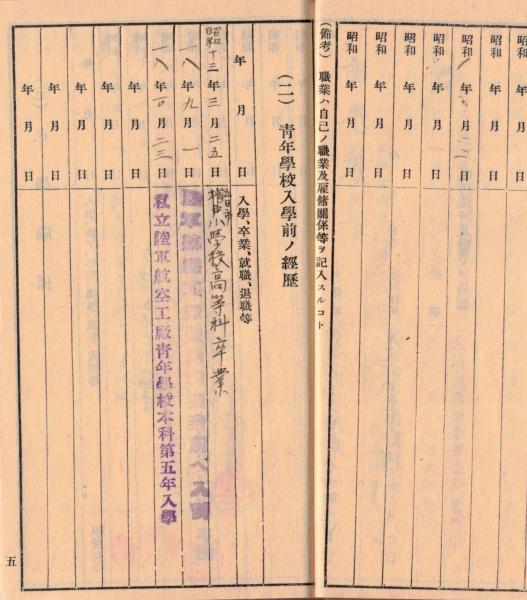 昭和 年 月 日
昭和 年 月 日
昭和 年 月 日
昭和 年 月 日
昭和 年 月 日
昭和 年 月 日
(備考) 職業ハ自己ノ職業及雇傭關係等ヲ記入スルコト
(二) 青年學校入學前ノ經歷
年 月 日 入學、卒業、就職、退職等
昭和十三年三月二五日 小學校高等科卒業
一八年九月一日
一八年 月二三日 私立陸軍航空工廠青年學校本科第五年入學
年 月 日
年 月 日
年 月 日
年 月 日
年 月 日
五